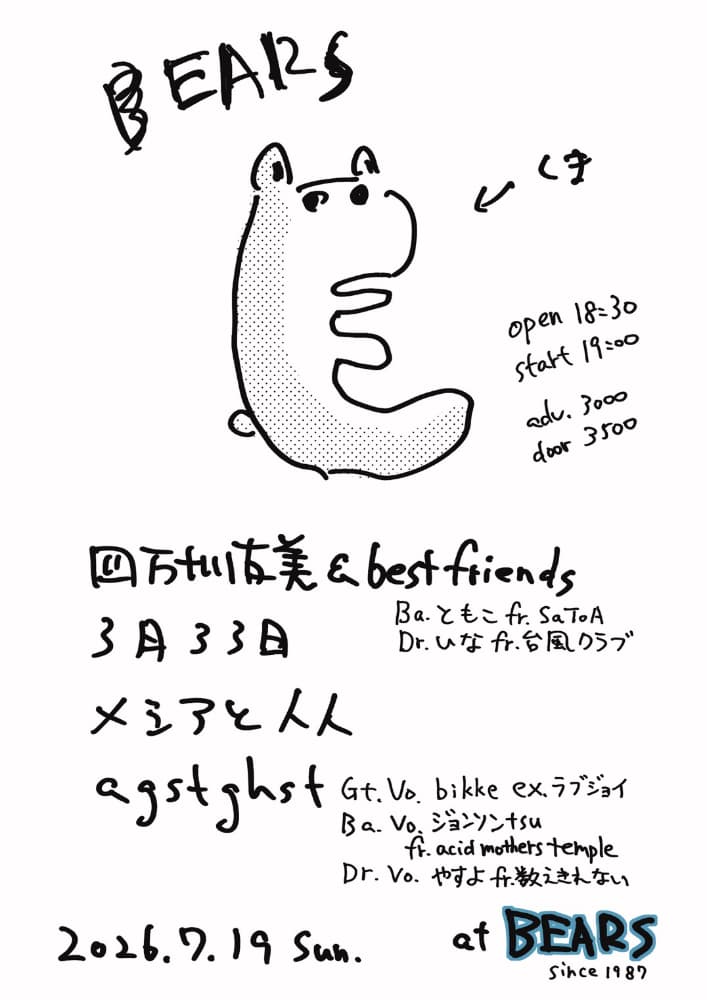 BEARS
くま
open 18:30
start 19:00
adv. 3000
door 3500
四万十川友美 & best friends
Ba. ともこ fr. SaToA
Dr. ひな fr. 台風クラブ
3月33日
メシアと人人
agstghst
Gt. Vo. bikke ex. ラブジョイ
Ba. Vo. ジョンソンtsu
fr. acid mothers temple
Dr. Vo. やすよ fr. 数えきれない
2026.7.19 Sun.
at BEARS
since 1987